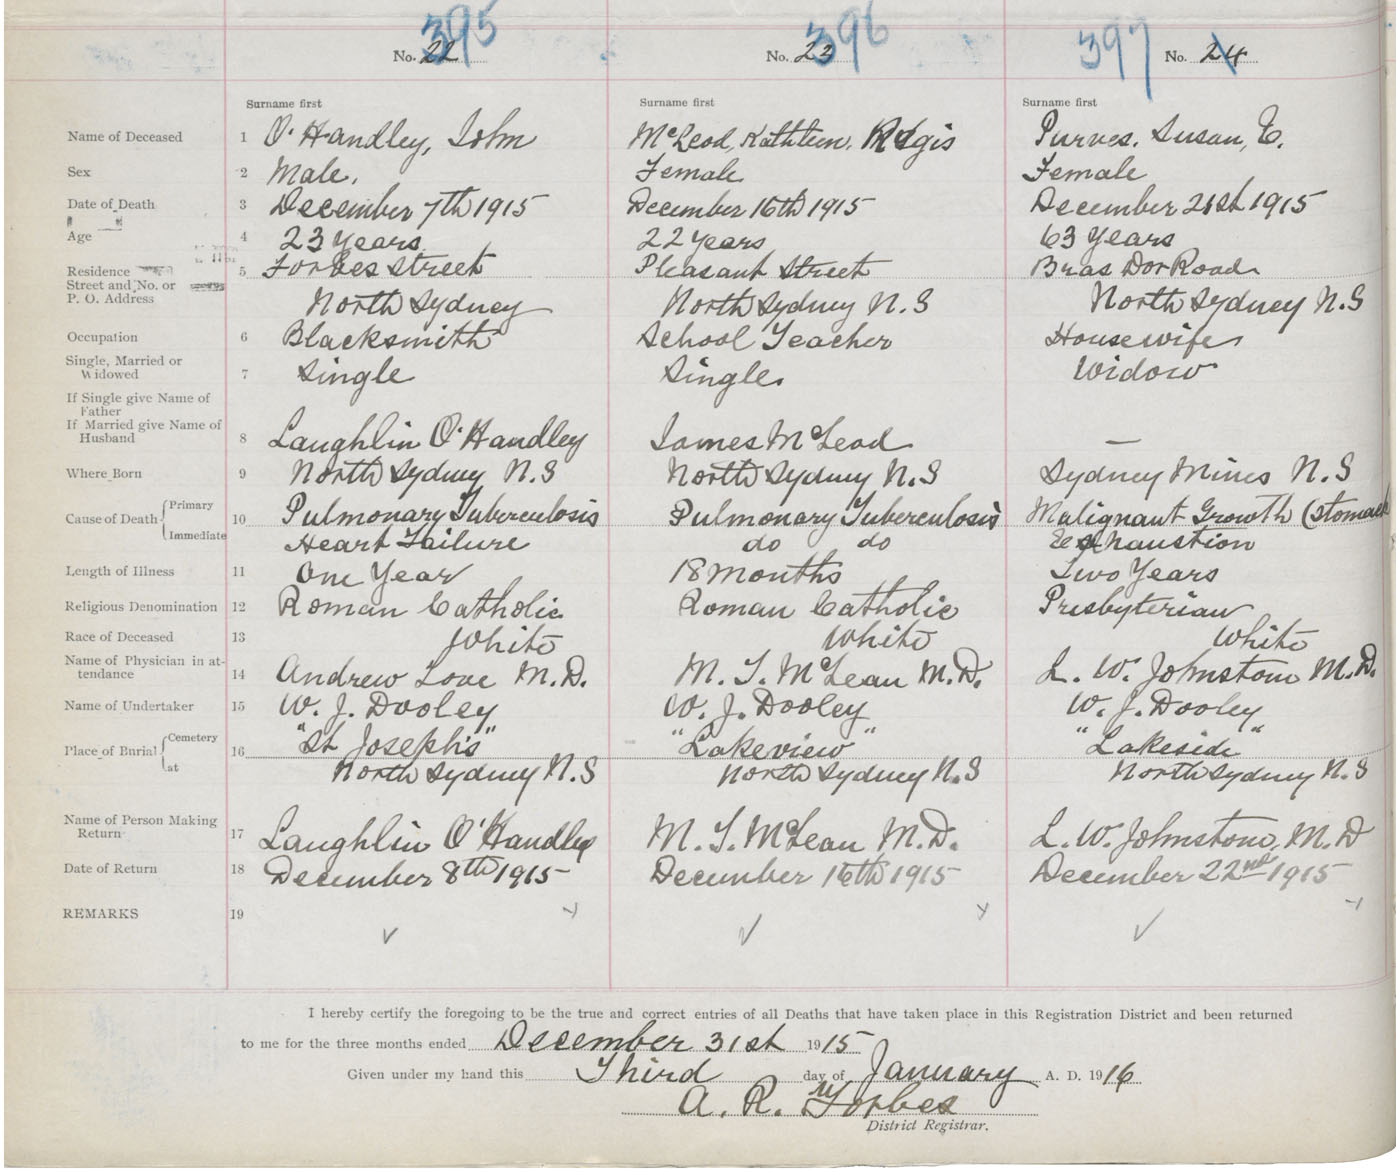 395 396 397
No. 22 No. 23 No. 24
Surname first Surname first Surname first
Name of Deceased 1 O'Handley, John McLeod, Kathleen, Regis Purves, Susan, E.
Sex 2 Male. Female Female
Date of Death 3 December 7th 1915 December 16th 1915 December 21st 1915
Age 4 23 Years 22 Years 63 Years
Residence 5 Forbes Street Pleasant Street Bras Dor Road
Street and No. or
P. O. Address North Sydney North Sydney N.S North Sydney N.S
Occupation 6 Blacksmith School Teacher Housewife
Single, Married or
Widowed 7 Single Single Widow
If Single give Name of
Father
If Married give Name of
Husband 8 Laughlin O'Handley James McLeod —
Where Born 9 North Sydney N.S North Sydney N.S Sydney Mines N.S
Cause of Death Primary 10 Pulmonary Tuberculosis Pulmonary Tuberculosis Malignant Growth (Stomach
Immediate Heart Failure do do Exhaustion
Length of Illness 11 One Year 18 Months Two Years
Religious Denomination 12 Roman Catholic Roman Catholic Presbyterian
Race of Deceased 13 White White White
Name of Physician in at-
tendance 14 Andrew Love M.D. M. T. McLean M.D. L. W. Johnstone M.D.
Name of Undertaker 15 W. J. Dooley W. J. Dooley W. J. Dooley
Place of Burial Cemetery 16 "St Joseph's" "Lakeview" "Lakeside"
at North Sydney N.S North Sydney N.S North Sydney N.S
Name of Person Making
Return 17 Laughlin O'Handley M. T. McLean M.D. L. W. Johnstone, M.D
Date of Return 18 December 8th 1915 December 16th 1915 December 22nd 1915
REMARKS 19
I hereby certify the foregoing to be the true and correct entries of all Deaths that have taken place in this Registration District and been returned
to me for the three months ended December 31st 1915
Given under my hand this Third day of January A. D. 1916
A. R. Forbes
District Registrar.